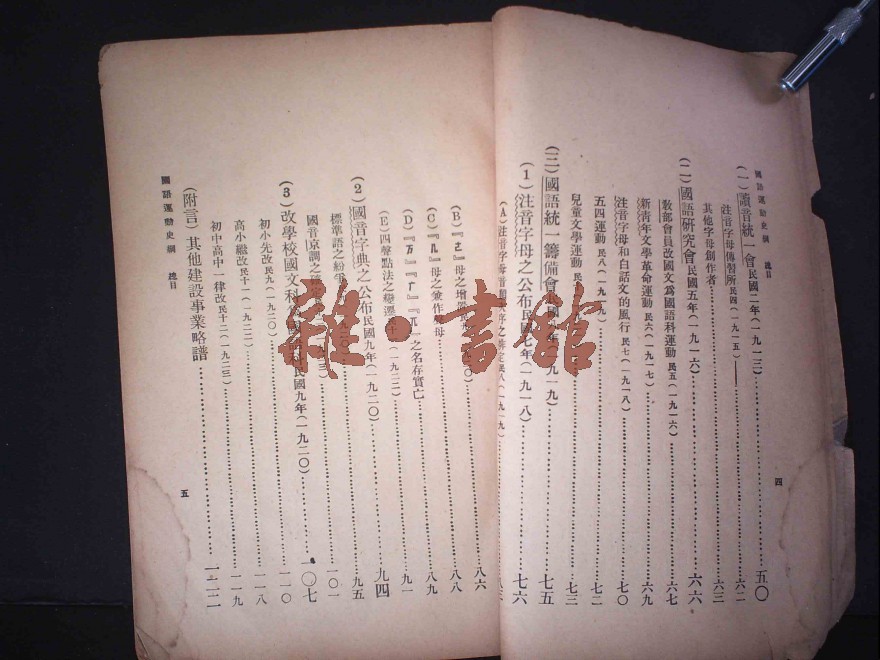 國語運動史綱 總目
(一)讀音統一會民國二年(一九一三)……五〇
注音字母傳習所民四(一九一五)——……六二
其他字母創作者……六三
(二)國語研究會民國五年(一九一六)……六六
教部會員改國文爲國語科運動民五(一九一六)……六七
新青年文學革命運動民六(一九一七)……六九
注音字母和白話文的風行民七(一九一八)……七〇
五四運動民八(一九一九)……七二
兒童文學運動民……七三
(三)國語統一籌備會民國八年(一九一九)……七五
(1)注音字母之公布民國七年(一九一八)……七六
四
(A)注音字母音類次序之……定民八(一九一九)
(B)『ㄜ』母之增……〇)……八六
……八八
(C)『ㄦ』母之兼作聲母……八九
(D)『万』『广』『兀』之名存實亡……九一
(E)四聲點法之變遷……(一九二二)……九四
(2)國音字典之公布民國九年(一九二〇)……九五
標準語之紛爭……九二〇)……一〇一
國音京調之……三)……一〇七
(3)改學校國文科爲國語科民國九年(一九二〇)……一一〇
初小先改民九(一九二〇)……一一八
高小繼改民十一(一九二二)……一一九
初中高中一律改民十二(一九二三)
(附言)其他建設事業略譜……一二二
國語運動史綱 總目
五
雜·書館